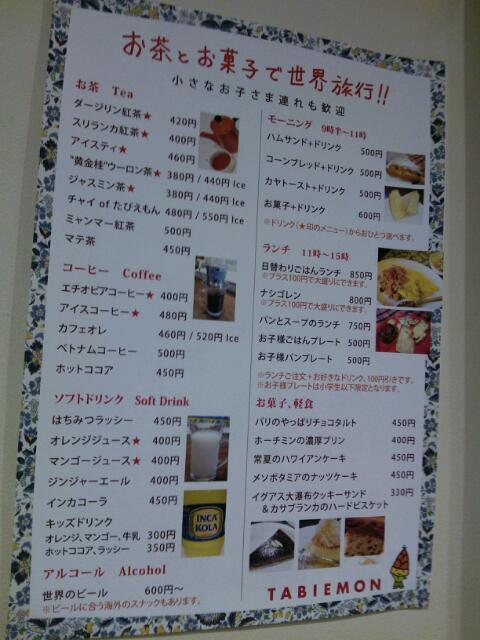 お茶とお菓子で世界旅行!!
小さなお子さま連れも歓迎
お茶 Tea
ダージリン紅茶★ 420円
スリランカ紅茶★ 400円
アイスティ★ 460円
"黄金桂"ウーロン茶★ 380円 / 440円 Ice
ジャスミン茶★ 380円 / 440円 Ice
チャイ of たびえもん 480円 / 550円 Ice
ミャンマー紅茶 500円
マテ茶 450円
コーヒー Coffee
エチオピアコーヒー★ 400円
アイスコーヒー★ 480円
カフェオレ 460円 / 520円 Ice
ベトナムコーヒー 500円
ホットココア 450円
ソフトドリンク Soft Drink
はちみつラッシー 450円
オレンジジュース★ 400円
マンゴージュース★ 400円
ジンジャーエール 400円
インカコーラ 450円
キッズドリンク
オレンジ、マンゴー、牛乳 300円
ホットココア、ラッシー 350円
INCA
KOLA
アルコール Alcohol
世界のビール 600円〜
※ビールに合う海外のスナックもあります。
モーニング 9時半〜11時
ハムサンド+ドリンク 500円
コーンブレッド+ドリンク 500円
カヤトースト+ドリンク 500円
お菓子+ドリンク 600円
※ドリンク(★印のメニュー)からおひとつ選べます。
ランチ 11時〜15時
日替わりごはんランチ 850円
※プラス100円で大盛りにできます。
ナシゴレン 800円
※プラス100円で大盛りにできます。
パンとスープのランチ 750円
お子様ごはんプレート 500円
お子様パンプレート 500円
※ランチご注文+お好きなドリンク、100円引きです。
※お子様プレートは小学生以下限定となります。
お菓子、軽食
パリのやっぱりチョコタルト 450円
ホーチミンの濃厚プリン 400円
常夏のハワイアンケーキ 450円
メソポタミアのナッツケーキ 450円
イグアス大瀑布クッキーサンド 330円
&カサブランカのハードビスケット
TABIEMON